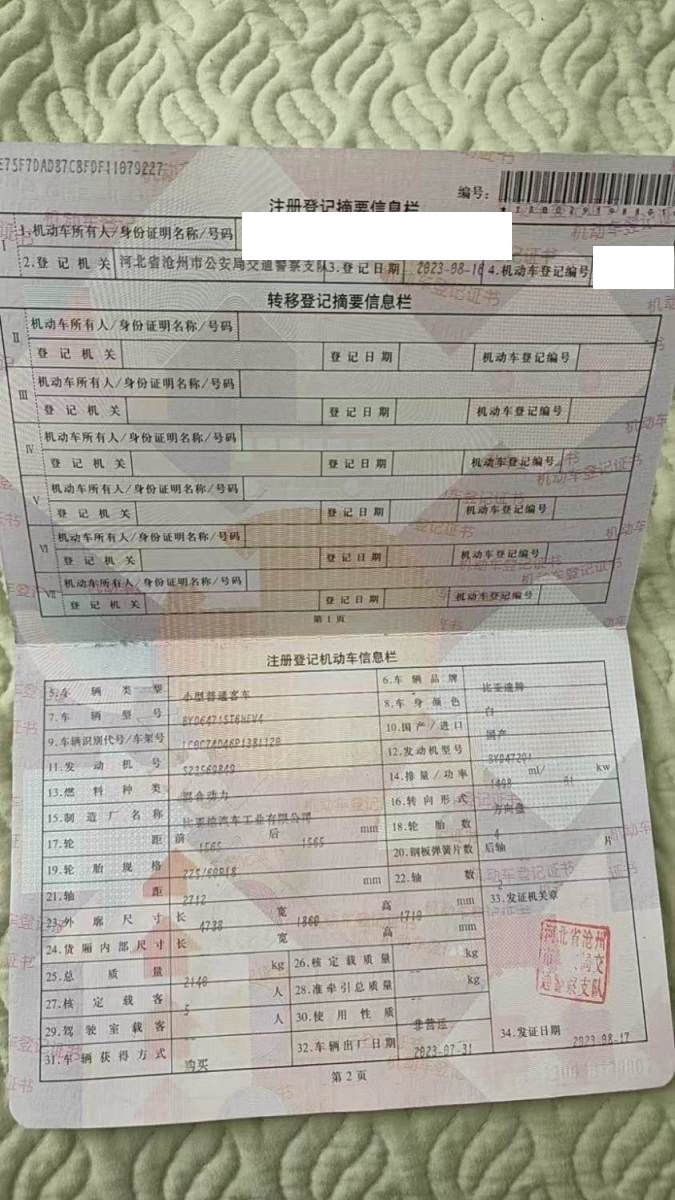 E75F7DAD87C8FDF11079227
编号:
注册登记摘要信息栏
I 1.机动车所有人/身份证明名称/号码
2.登记机关 河北省沧州市公安局交通警察支队 3.登记日期 2023-08-16 4.机动车登记编号
转移登记摘要信息栏
II 机动车所有人/身份证明名称/号码
登记机关 登记日期 机动车登记编号
III 机动车所有人/身份证明名称/号码
登记机关 登记日期 机动车登记编号
IV 机动车所有人/身份证明名称/号码
登记机关 登记日期 机动车登记编号
V 机动车所有人/身份证明名称/号码
登记机关 登记日期 机动车登记编号
VI 机动车所有人/身份证明名称/号码
登记机关 登记日期 机动车登记编号
VII 机动车所有人/身份证明名称/号码
登记机关 登记日期 机动车登记编号
第1页
注册登记机动车信息栏
5.车辆类型 小型普通客车 6.车辆品牌 比亚迪牌
7.车辆型号 BYD6471ST6HEV4 8.车身颜色 白
9.车辆识别代号/车架号 10.国产/进口 国产
11.发动机号 12.发动机型号
13.燃料种类 混合动力 14.排量/功率 1498 ml/ kw
15.制造厂名称 比亚迪汽车工业有限公司 16.转向形式 方向盘
17.轮距 前 1565 后 1565 mm 18.轮胎数 4
19.轮胎规格 225/60R18 20.钢板弹簧片数 后轴 片
21.轴距 2712 mm 22.轴数 2
23.外廓尺寸 长 4738 宽 1860 高 1710 mm 33.发证机关章
24.货厢内部尺寸 长 宽 高 mm
25.总质量 2140 kg 26.核定载质量 kg
27.核定载客 5 人 28.准牵引总质量 kg
29.驾驶室载客 人 30.使用性质 非营运
31.车辆获得方式 购买 32.车辆出厂日期 2023-07-31 34.发证日期 2023-08-17
第2页